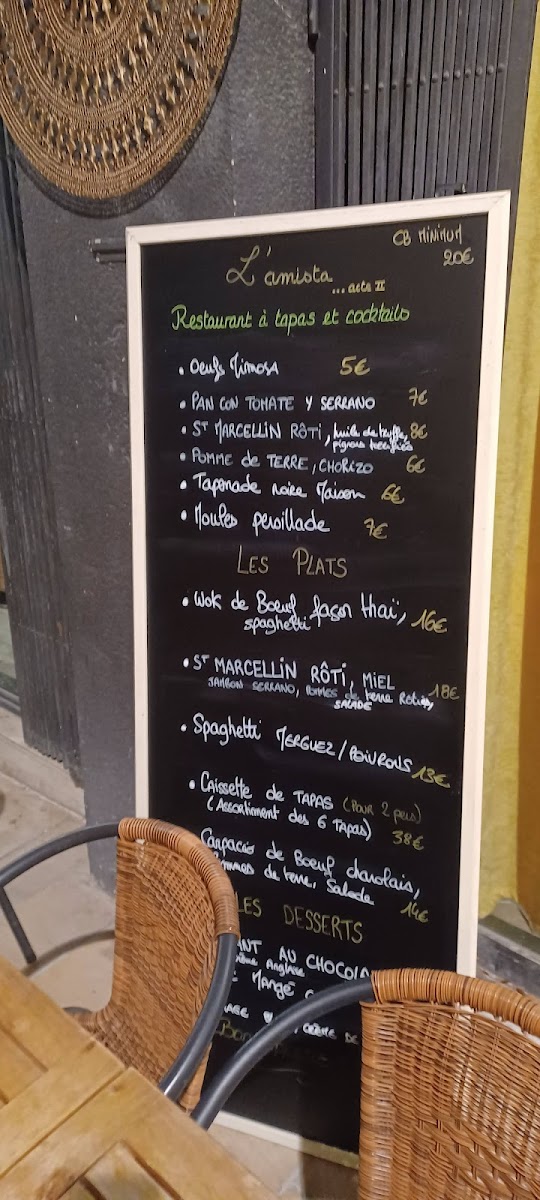 CB MINIMUM
20€
L'amista
...acte II
Restaurant à tapas et cocktails
• Oeufs Mimosa 5€
• PAN CON TOMATE Y SERRANO 7€
• ST MARCELLIN RÔTI, huile de truffe, 8€
pignons torréfiés
• POMME de TERRE, CHORIZO 6€
• Tapenade noire Maison 6€
• Moules persillade 7€
LES PLATS
• Wok de Boeuf façon thaï, 16€
spaghetti
• ST MARCELLIN RÔTI, MIEL
JAMBON SERRANO, POMMES de terre Rôties, 18€
SALADE
• Spaghetti MERGUEZ/POIVRONS 13€
• Caissette de TAPAS (POUR 2 pers)
(Assortiment des 6 Tapas) 38€
Carpaccio de Boeuf charolais,
Pommes de terre, Salade 14€
LES DESSERTS
AU CHOCOLA
Anglaise
MANGÉ
CRÈME DE